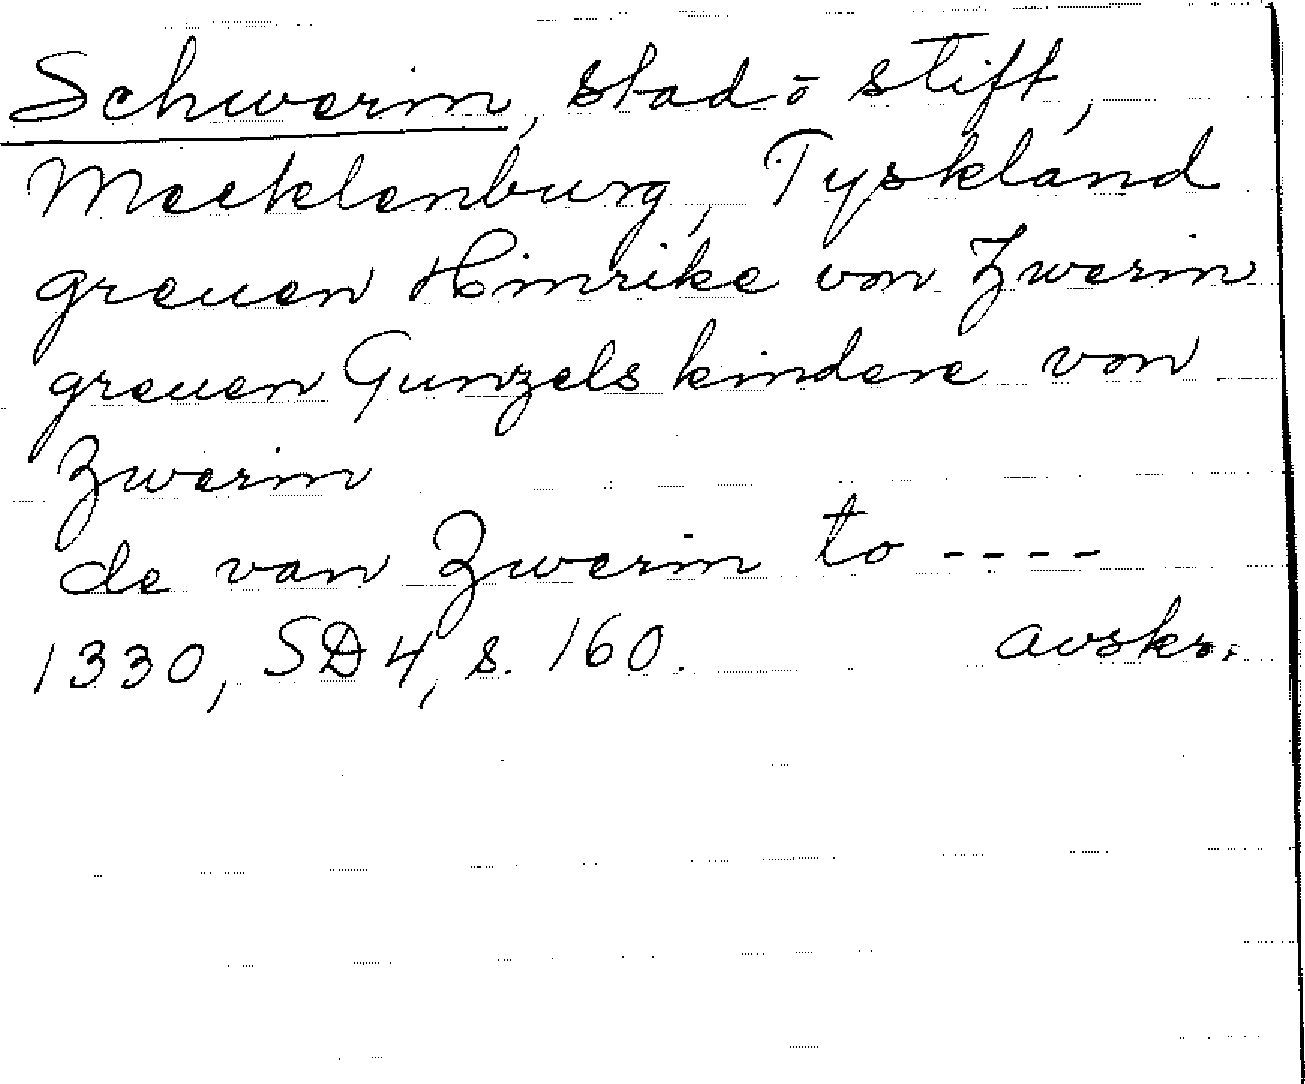 Schwerin, stad o stift,
Mecklenburg, Tyskland
greuen Hinrike von Zwerin
greuen Gunzels kindere von
Zwerin
de van Zwerin to ----
1330, SD 4, s. 160. avskr.